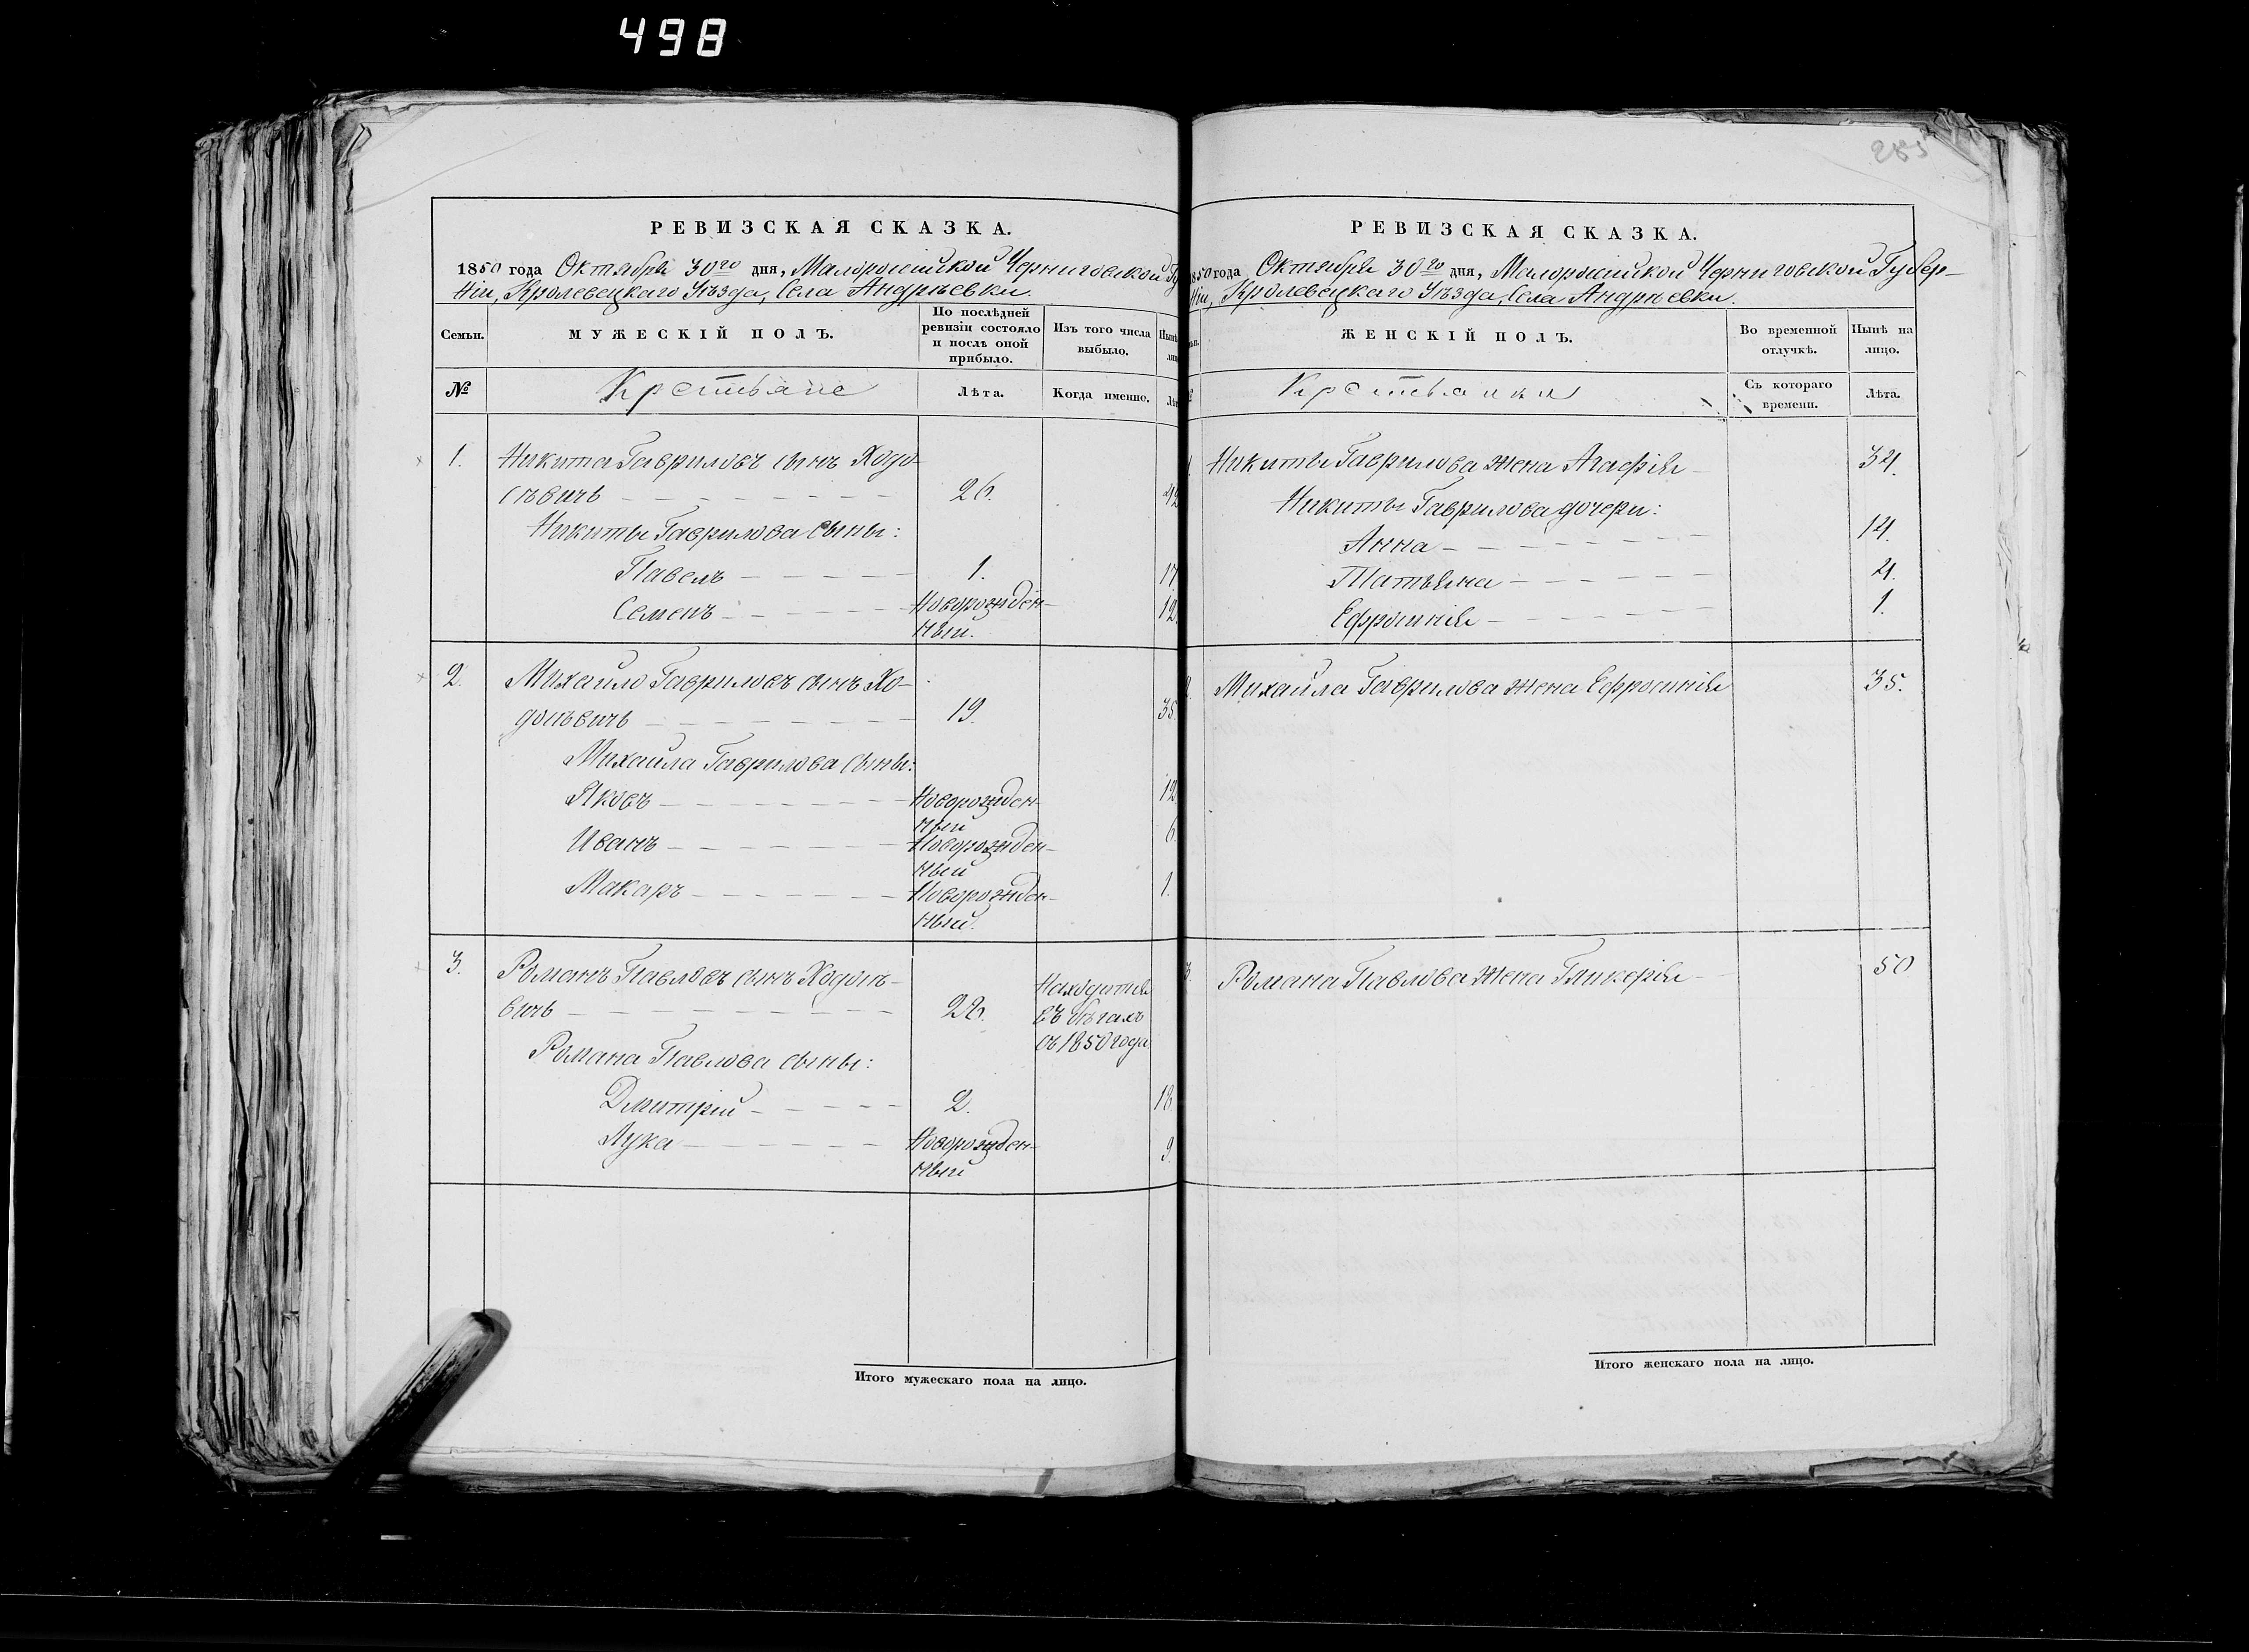 498
285
РЕВИЗСКАЯ СКАЗКА.
1850 года Октября 30го дня, Малороссійской Черниговской Гу
ніи, Кролевецкаго Уѣзда, Села Андрѣевки.
Семьи.
МУЖЕСКІЙ ПОЛЪ.
По послѣдней ревизіи состояло и послѣ оной прибыло.
Изъ того числа выбыло.
№
Крестьяне
Лѣта.
Когда именно.
1. Никита Гавриловъ сынъ Ходо-
сѣвичь 26. 42
Никиты Гаврилова сыны:
Павелъ 1. 17
Семенъ Новорожден- 12.
ный.
2. Михайло Гавриловъ сынъ Хо-
досѣвичь 19. 35.
Михайла Гаврилова сыны:
Яковъ Новорожден- 12
ный
Иванъ Новорожден- 6.
ный
Макаръ Новорожден- 1.
ный.
3. Романъ Павловъ сынъ Ходосѣ-
вичь 26. Находится
въ бѣгахъ
съ 1850 года
Романа Павлова сыны:
Дмитрій 2. 18.
Лука Новорожден- 9.
ный
Итого мужескаго пола на лицо.
РЕВИЗСКАЯ СКАЗКА.
1850 года Октября 30го дня, Малороссійской Черниговской Губер-
ніи, Кролевецкаго Уѣзда, Села Андрѣевки.
ЖЕНСКІЙ ПОЛЪ.
Во временной отлучкѣ.
Нынѣ на лицо.
Крестьянки
Съ котораго времени.
Лѣта.
Никиты Гаврилова жена Агафія 34.
Никиты Гаврилова дочери:
Анна 14.
Татьяна 4.
Ефросинія 1.
2. Михайла Гаврилова жена Ефросинія 35.
3. Романа Павлова жена Гликерія 50
Итого женскаго пола на лицо.